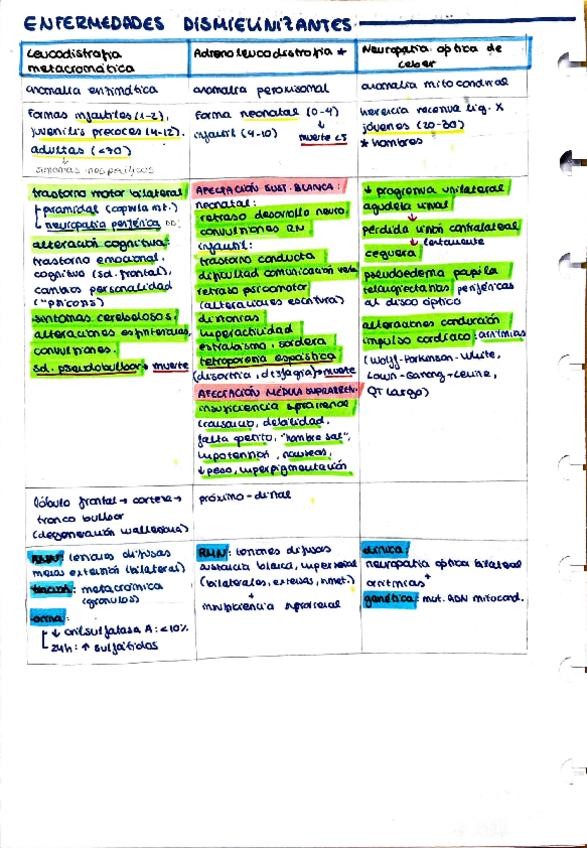 ENFERMEDADES DISMIELINIZANTES
Leucodistrofia
metacromática
anomalía enzimática
Formas infantiles (1-2),
juveniles precoces (4-12).
adultas (<70)
↓
síntomas inespecíficos
trastorno motor bilateral
piramidal (capsula int.)
neuropatía periférica
alteración cognitiva:
trastorno emocional.
cognitivo (sd. frontal),
cambios personalidad
("psicosis)
síntomas cerebelosos.
alteraciones esfinterianas
convulsiones.
sd. pseudobulbar → muerte
lóbulo frontal → corteza →
tronco bulbar
(degeneración walleriana)
RMN: lesiones difusas
mais extensión (bilateral)
tinción: metacrómica
(gránulos)
orina:
↓ arilsulfatasa A: <10%
24h: ↑ sulfátidos
Adrenoleucodistrofia *
anomalía peroxisomal
Forma neonatal (0-4)
↓
infantil (4-10) muerte <5
AFECTACIÓN SUST. BLANCA:
neonatal:
retraso desarrollo neuro.
convulsiones RN
infantil:
trastorno conducta
dificultad comunicación verb
retraso psicomotor
(alteraciones escritura)
distonías
hiperactividad
estrabismo, sordera
tetraparesia espástica
(disartria, disfagia) → muerte
AFECTACIÓN MÉDULA SUPRARREN.
insuficiencia suprarrenal
(cansancio, debilidad,
falta apetito, "hambre sal",
hipotensión, náuseas,
↓ peso, hiperpigmentación
próximo-distal
RMN: lesiones difusas
sustancia blanca, supresoial
(bilaterales, extensas, simet.)
+
insuficiencia suprarrenal
Neuropatía óptica de
Leber
anomalía mitocondrial
herencia recesiva lig. X
jóvenes (20-30)
* hombres
↓ progresiva unilateral
agudeza visual
↓
pérdida visión contralateral
↓ lentamente
ceguera
pseudoedema papila
telangiectasias periféricas
al disco óptico
alteraciones conducción
impulso cardíaco: arritmias
(Wolff-Parkinson-White,
Lown-Ganong-Levine,
QT largo)
clínica:
neuropatía óptica bilateral
+
arritmias
genética: mut. ADN mitocond.